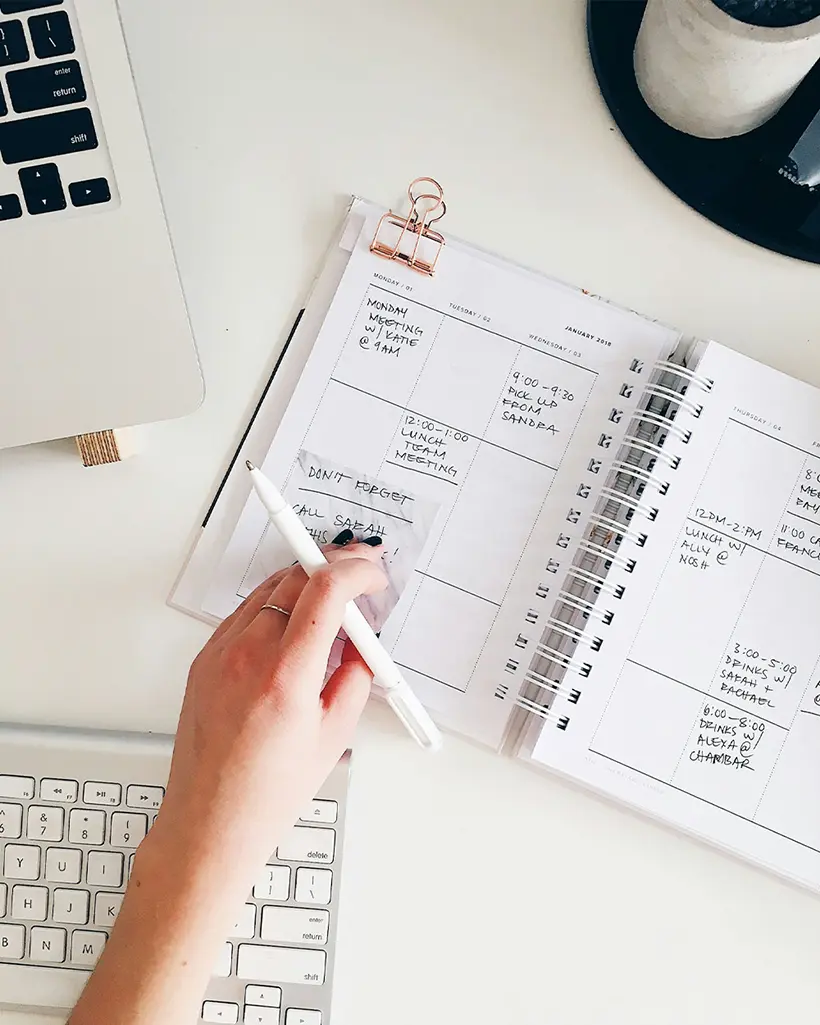 MONDAY / 01
MONDAY
MEETING
W/ KATIE
@ 9AM
TUESDAY / 02
12:00-1:00
LUNCH
TEAM
MEETING
JANUARY 2018
WEDNESDAY / 03
9:00-9:30
PICK UP
FROM
SANDRA
DON'T FORGET
CALL SARAH
THIS
THURSDAY / 04
12PM-2PM
LUNCH W/
ALLY @
NOSH
3:00-5:00
DRINKS W/
SARAH +
RACHAEL
6:00-8:00
DRINKS W/
ALEXA @
CHAMBAR
11:00
enter
return
shift
&
7
*
8
(
9
Y
U
I
H
J
K
B
N
M
delete
enter
return
shift